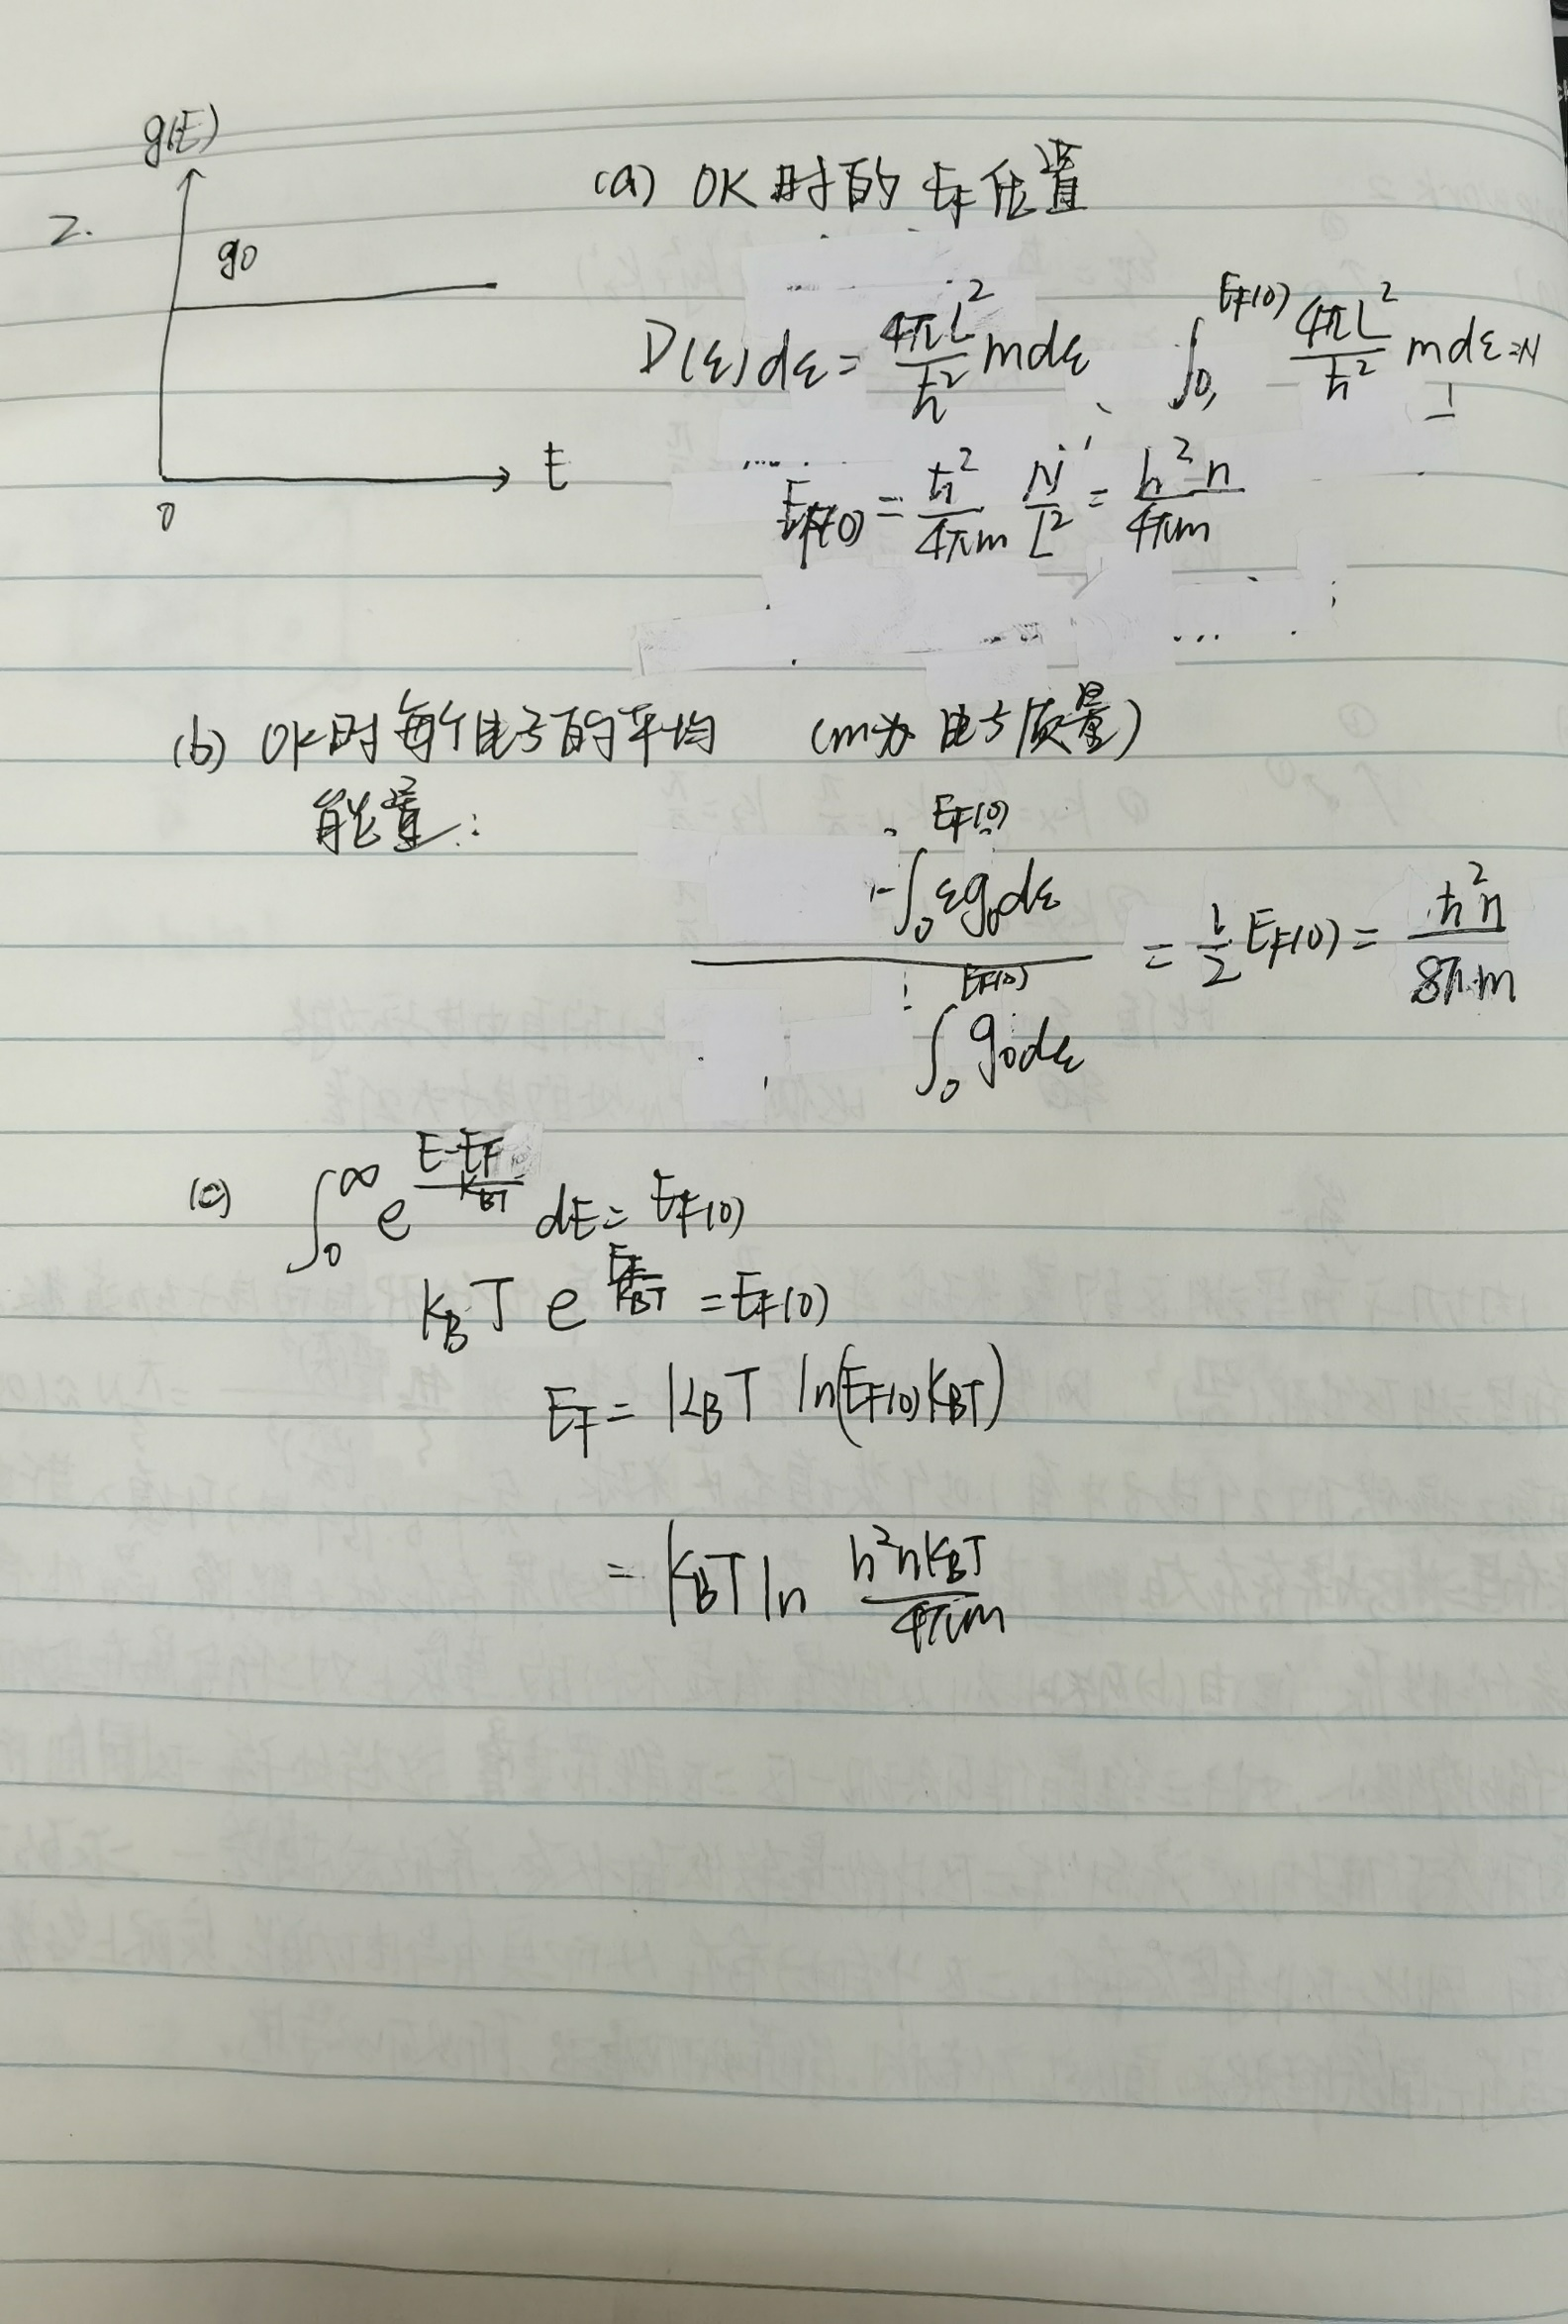 2.
g(E)
g0
E
0
(a) 0K时的EF位置
D(ε)dε = 4πL²/ħ² mdε ∫₀^EF(0) 4πL²/ħ² mdε=N
EF(0) = ħ²/4πm N/L² = h²n/4πm
(b) 0K时每个电子的平均 (m为电子质量)
能量:
∫₀^EF(0) εg₀dε / ∫₀^EF(0) g₀dε = 1/2 EF(0) = ħ²n/8πm
(c) ∫₀^∞ e^(E-EF/KBT) dE = EF(0)
KBT e^(EF/KBT) = EF(0)
EF = KBT ln(EF(0)KBT)
= KBT ln h²nKBT/4πm